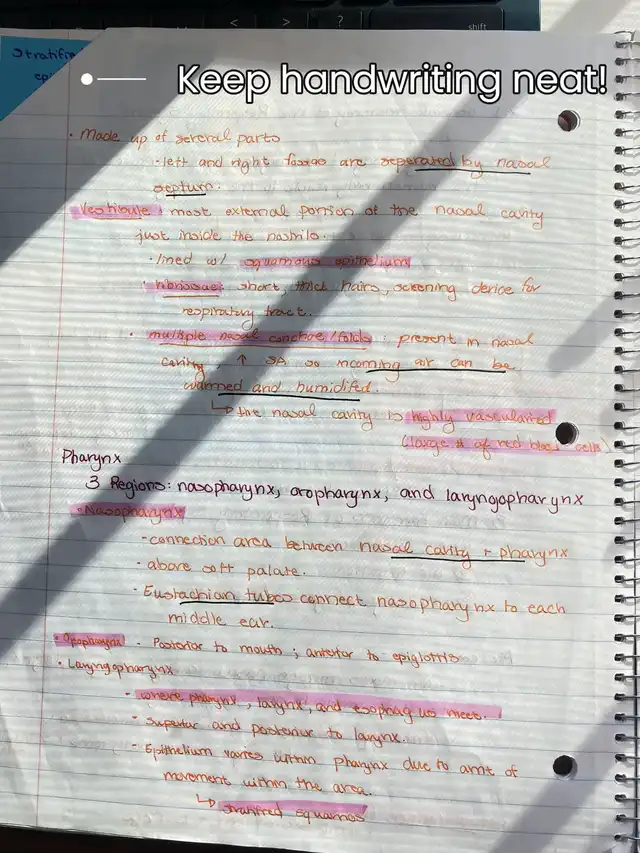 < > ?
shift
Stratifie
Keep handwriting neat!
• Made up of several parts
• left and right fossae are separated by nasal
septum.
Vestibule: most external portion of the nasal cavity
just inside the nostrils.
• lined w/ squamous epithelium
• vibrissae: short, thick hairs, screening device for
respiratory tract.
• multiple nasal conchae/folds: present in nasal
cavity, ↑ SA so incoming air can be
warmed and humidifed.
↳ the nasal cavity is highly vascularized
(large # of red blood cells)
Pharynx
3 Regions: nasopharynx, oropharynx, and laryngopharynx
• Nasopharynx
- connection area between nasal cavity + pharynx
- above soft palate.
- Eustachian tubes connect nasopharynx to each
middle ear.
• Oropharynx - Posterior to mouth; anterior to epiglottis
• Laryngopharynx
- where pharynx, larynx, and esophagus meet.
- Superior and posterior to larynx.
- Epithelium varies within pharynx due to amt of
movement within the area.
↳ stratified squamos